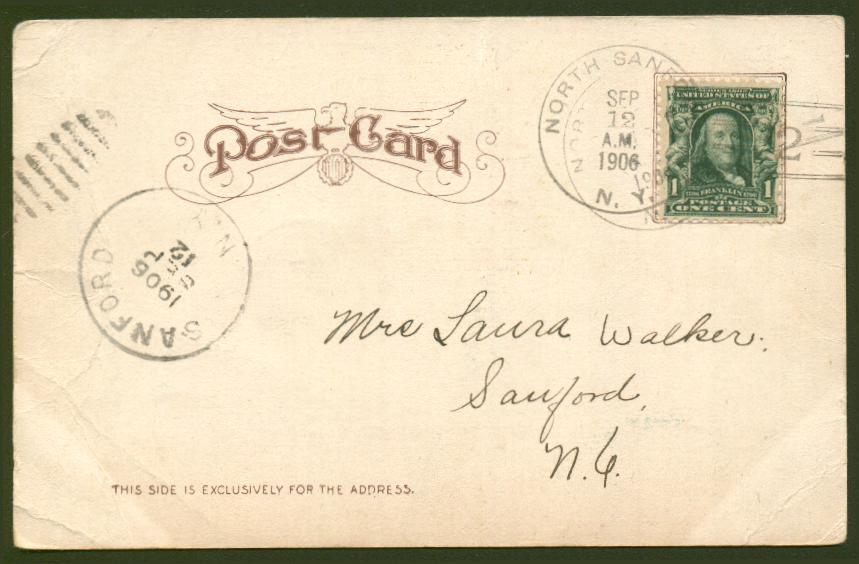 NORTH SAN
SEP
12
A.M.
1906
N. Y.
NORT
190
2
SERIES 1902
UNITED STATES OF
AMERICA
1 FRANKLIN 1
POSTAGE
ONE CENT
Post Card
SANFORD N.Y.
SEP
12
1906
Mrs Laura Walker.
Sanford,
N.Y.
THIS SIDE IS EXCLUSIVELY FOR THE ADDRESS.